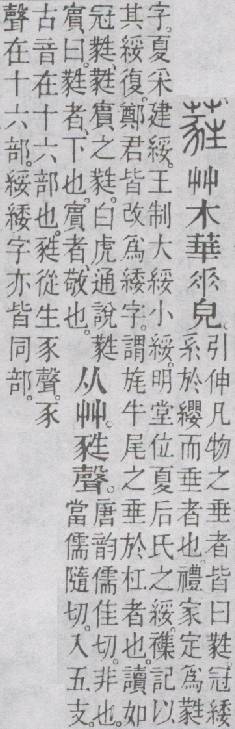 蕤艸木華𠂹皃。引伸凡物之垂者皆曰蕤。冠緌
系於纓而垂者也。禮家定爲蕤
字。夏采建綏。王制大綏小綏。明堂位夏后氏之綏。襍記以
其綏復。鄭君皆改爲緌字。謂旄牛尾之垂於杠者也。讀如
冠蕤、蕤賓之蕤。白虎通說蕤
賓曰。蕤者、下也。賓者、敬也。从艸。甤聲。唐韵儒佳切。非也。
當儒隨切。入五支。
古音在十六部也。甤從生豕聲。豕
聲在十六部。綏緌字亦皆同部。